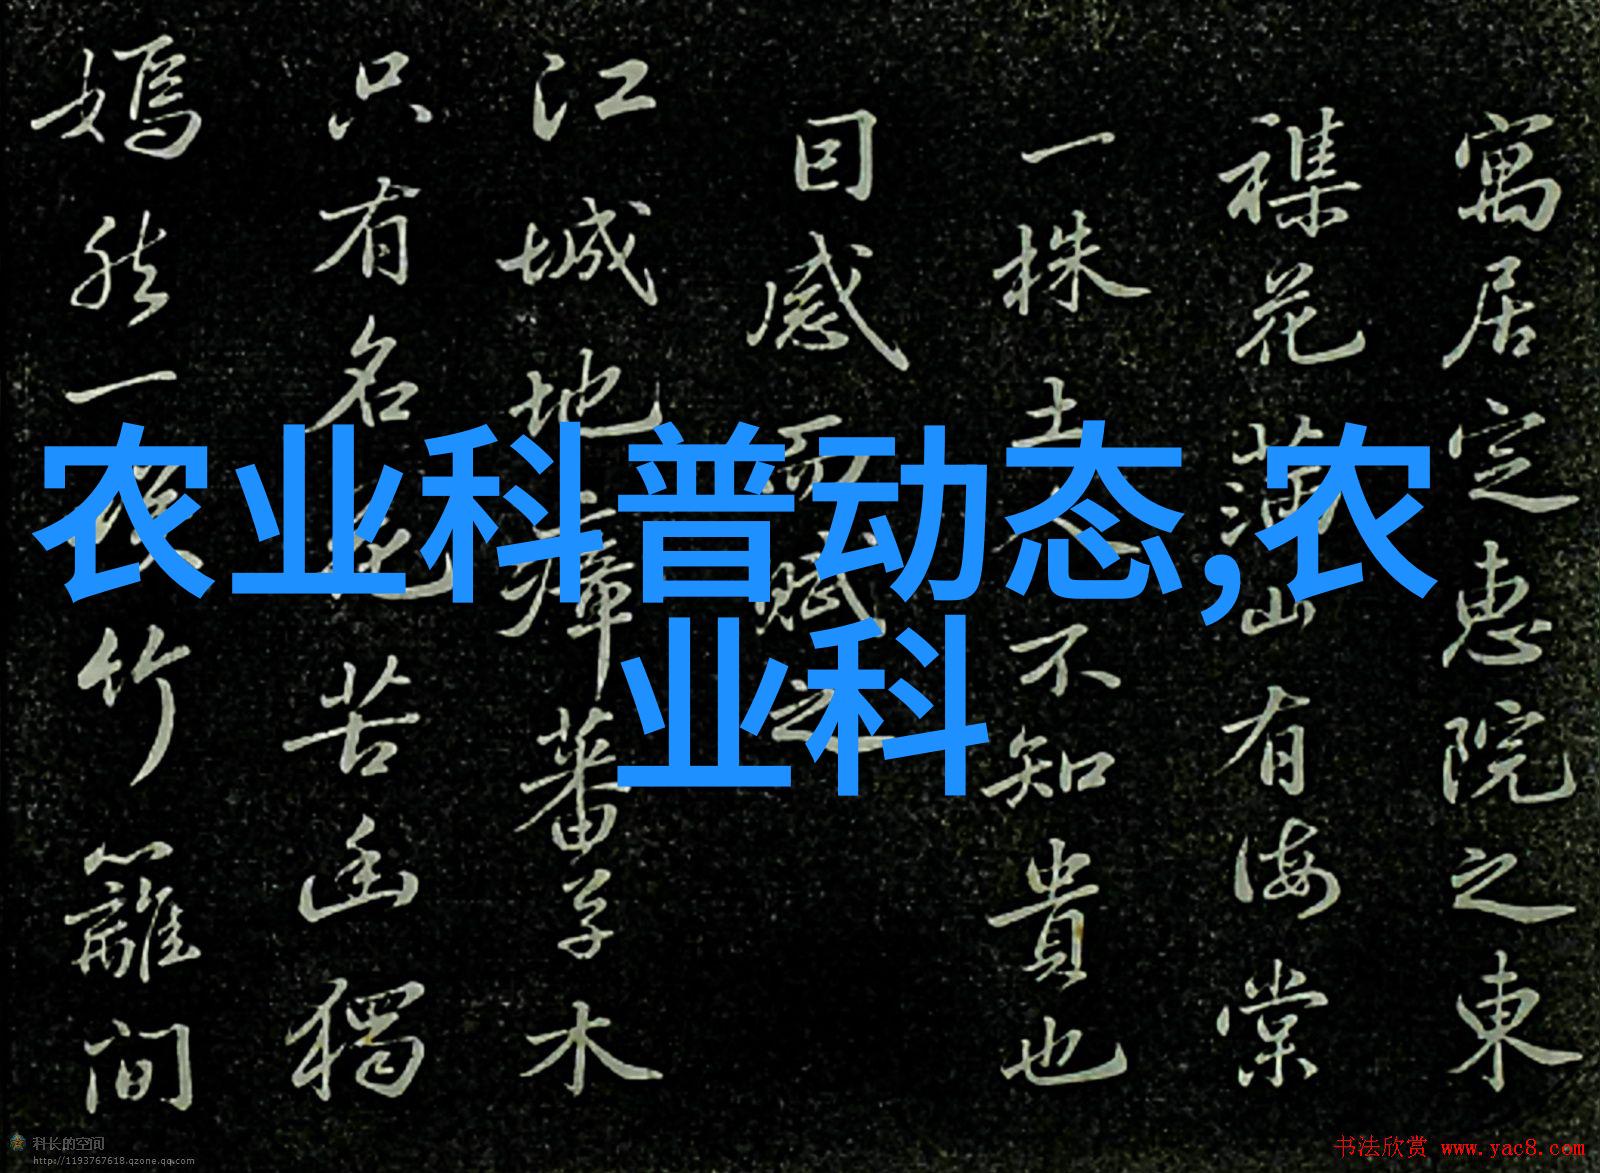 寓居定惠院之東
襍花滿山有海棠
一株土人不知貴也
囙感而賦之
江城地瘴蕃草木
只有名花苦幽獨
嫣然一笑竹籬間
农业科普动态,农
业科
科长的空间
http://1193767618.qzone.qq.com
书法欣赏 www.yac8.com